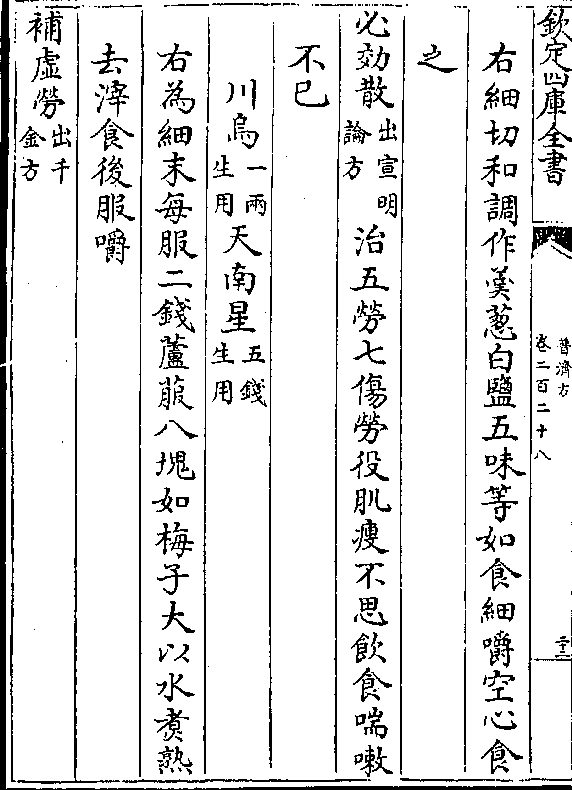 欽定四庫全書
普濟方
卷二百二十八
二十二
右細切和調作羹葱白鹽五味等如食細嚼空心食
之
必効散出宣明論方治五勞七傷勞役肌瘦不思飲食喘嗽
不已
川烏一兩生用天南星五錢生用
右為細末每服二錢蘆菔八塊如梅子大以水煮熟
去滓食後服嚼
補虛勞出千金方